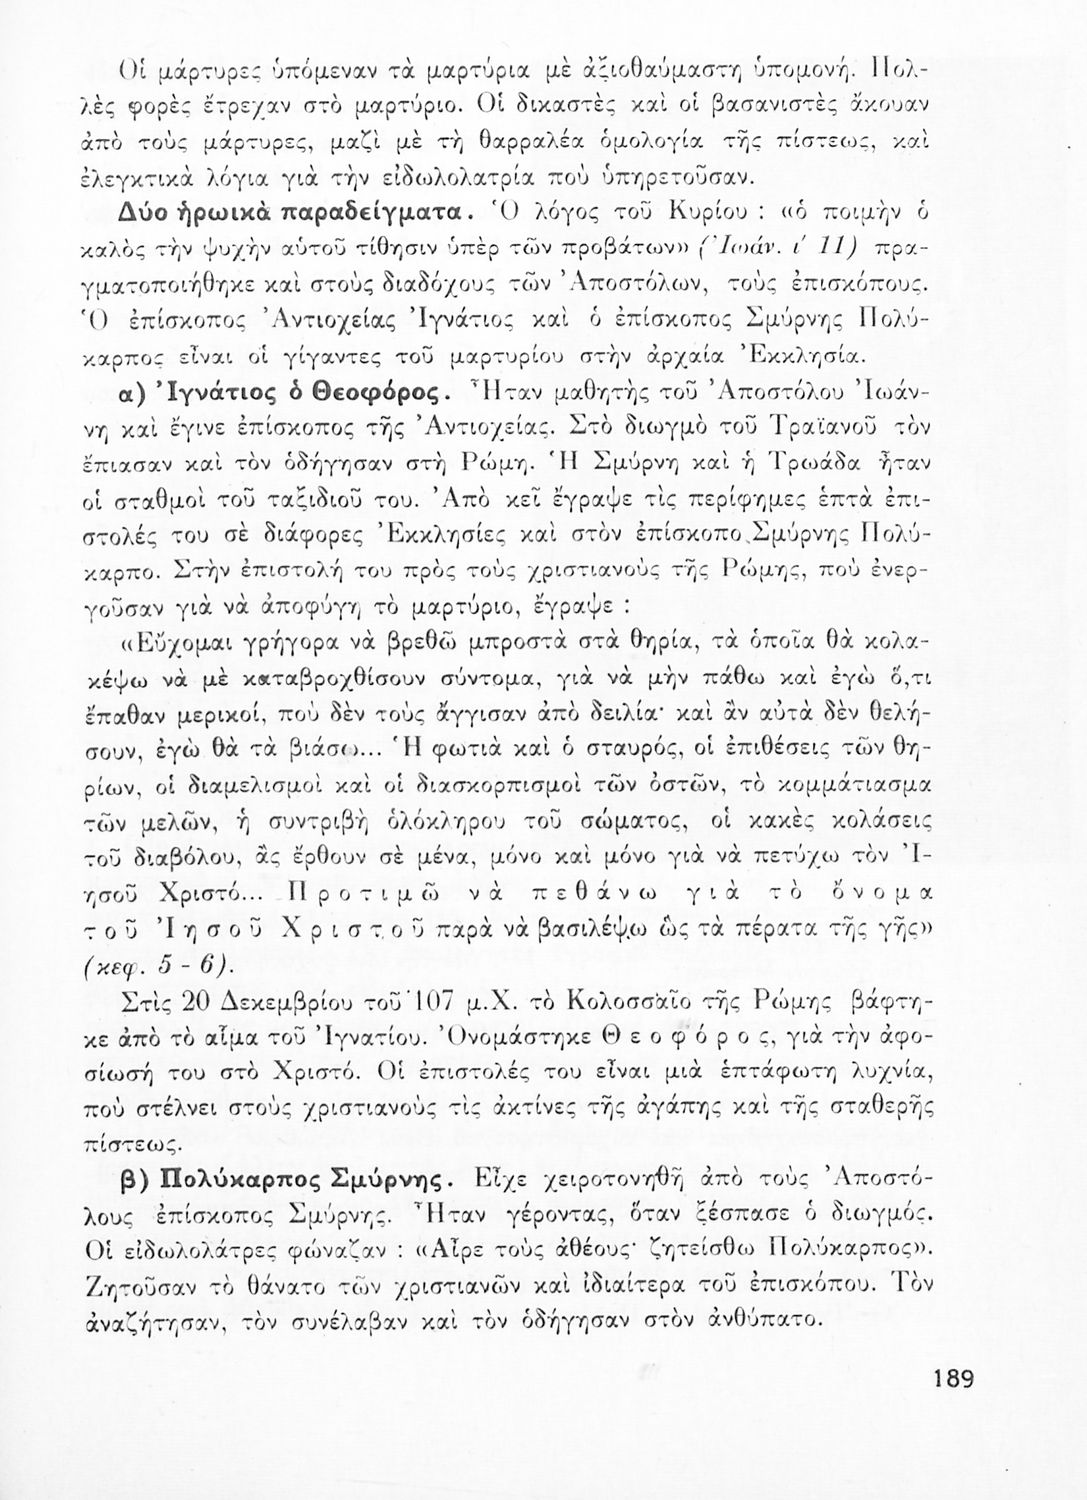 Οἱ μάρτυρες ὑπόμεναν τὰ μαρτύρια μὲ ἀξιοθαύμαστη ὑπομονή. Πολ-
λὲς φορὲς ἔτρεχαν στὸ μαρτύριο. Οἱ δικαστὲς καὶ οἱ βασανιστὲς ἄκουαν
ἀπὸ τοὺς μάρτυρες, μαζὶ μὲ τὴ θαρραλέα ὁμολογία τῆς πίστεως, καὶ
ἐλεγκτικὰ λόγια γιὰ τὴν εἰδωλολατρία ποὺ ὑπηρετοῦσαν.
Δύο ἡρωικὰ παραδείγματα. Ὁ λόγος τοῦ Κυρίου : «ὁ ποιμὴν ὁ
καλὸς τὴν ψυχὴν αὑτοῦ τίθησιν ὑπὲρ τῶν προβάτων» (Ἰωάν. ι΄ 11) πρα-
γματοποιήθηκε καὶ στοὺς διαδόχους τῶν Ἀποστόλων, τοὺς ἐπισκόπους.
Ὁ ἐπίσκοπος Ἀντιοχείας Ἰγνάτιος καὶ ὁ ἐπίσκοπος Σμύρνης Πολύ-
καρπος εἶναι οἱ γίγαντες τοῦ μαρτυρίου στὴν ἀρχαία Ἐκκλησία.
α) Ἰγνάτιος ὁ Θεοφόρος. Ἦταν μαθητὴς τοῦ Ἀποστόλου Ἰωάν-
νη καὶ ἔγινε ἐπίσκοπος τῆς Ἀντιοχείας. Στὸ διωγμὸ τοῦ Τραϊανοῦ τὸν
ἔπιασαν καὶ τὸν ὁδήγησαν στὴ Ρώμη. Ἡ Σμύρνη καὶ ἡ Τρωάδα ἦταν
οἱ σταθμοὶ τοῦ ταξιδιοῦ του. Ἀπὸ κεῖ ἔγραψε τὶς περίφημες ἑπτὰ ἐπι-
στολές του σὲ διάφορες Ἐκκλησίες καὶ στὸν ἐπίσκοπο Σμύρνης Πολύ-
καρπο. Στὴν ἐπιστολή του πρὸς τοὺς χριστιανοὺς τῆς Ρώμης, ποὺ ἐνερ-
γοῦσαν γιὰ νὰ ἀποφύγη τὸ μαρτύριο, ἔγραψε :
«Εὔχομαι γρήγορα νὰ βρεθῶ μπροστὰ στὰ θηρία, τὰ ὁποῖα θὰ κολα-
κέψω νὰ μὲ καταβροχθίσουν σύντομα, γιὰ νὰ μὴν πάθω καὶ ἐγὼ ὅ,τι
ἔπαθαν μερικοί, ποὺ δὲν τοὺς ἄγγισαν ἀπὸ δειλία· καὶ ἂν αὐτὰ δὲν θελή-
σουν, ἐγὼ θὰ τὰ βιάσω... Ἡ φωτιὰ καὶ ὁ σταυρός, οἱ ἐπιθέσεις τῶν θη-
ρίων, οἱ διαμελισμοὶ καὶ οἱ διασκορπισμοὶ τῶν ὀστῶν, τὸ κομμάτιασμα
τῶν μελῶν, ἡ συντριβὴ ὁλόκληρου τοῦ σώματος, οἱ κακὲς κολάσεις
τοῦ διαβόλου, ἂς ἔρθουν σὲ μένα, μόνο καὶ μόνο γιὰ νὰ πετύχω τὸν Ἰ-
ησοῦ Χριστό... Προτιμῶ νὰ πεθάνω γιὰ τὸ ὄνομα
τοῦ Ἰησοῦ Χριστοῦ παρὰ νὰ βασιλέψω ὣς τὰ πέρατα τῆς γῆς»
(κεφ. 5 - 6).
Στὶς 20 Δεκεμβρίου τοῦ 107 μ.Χ. τὸ Κολοσσαῖο τῆς Ρώμης βάφτη-
κε ἀπὸ τὸ αἷμα τοῦ Ἰγνατίου. Ὀνομάστηκε Θεοφόρος, γιὰ τὴν ἀφο-
σίωσή του στὸ Χριστό. Οἱ ἐπιστολές του εἶναι μιὰ ἑπτάφωτη λυχνία,
ποὺ στέλνει στοὺς χριστιανοὺς τὶς ἀκτίνες τῆς ἀγάπης καὶ τῆς σταθερῆς
πίστεως.
β) Πολύκαρπος Σμύρνης. Εἶχε χειροτονηθῆ ἀπὸ τοὺς Ἀποστό-
λους ἐπίσκοπος Σμύρνης. Ἦταν γέροντας, ὅταν ξέσπασε ὁ διωγμός.
Οἱ εἰδωλολάτρες φώναζαν : «Αἶρε τοὺς ἀθέους· ζητείσθω Πολύκαρπος».
Ζητοῦσαν τὸ θάνατο τῶν χριστιανῶν καὶ ἰδιαίτερα τοῦ ἐπισκόπου. Τὸν
ἀναζήτησαν, τὸν συνέλαβαν καὶ τὸν ὁδήγησαν στὸν ἀνθύπατο.
189